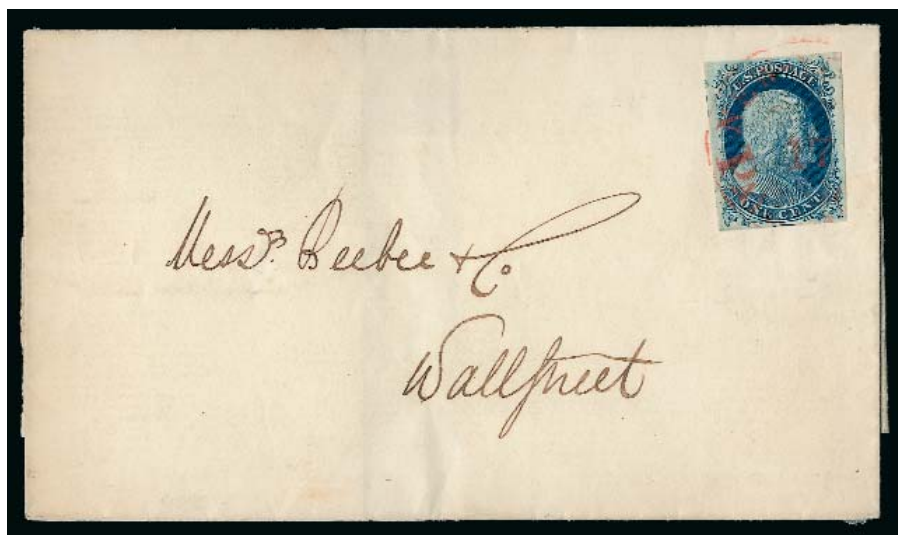 U.S. POSTAGE
ONE CENT
Messrs. Beebee & Co.
Wallstreet